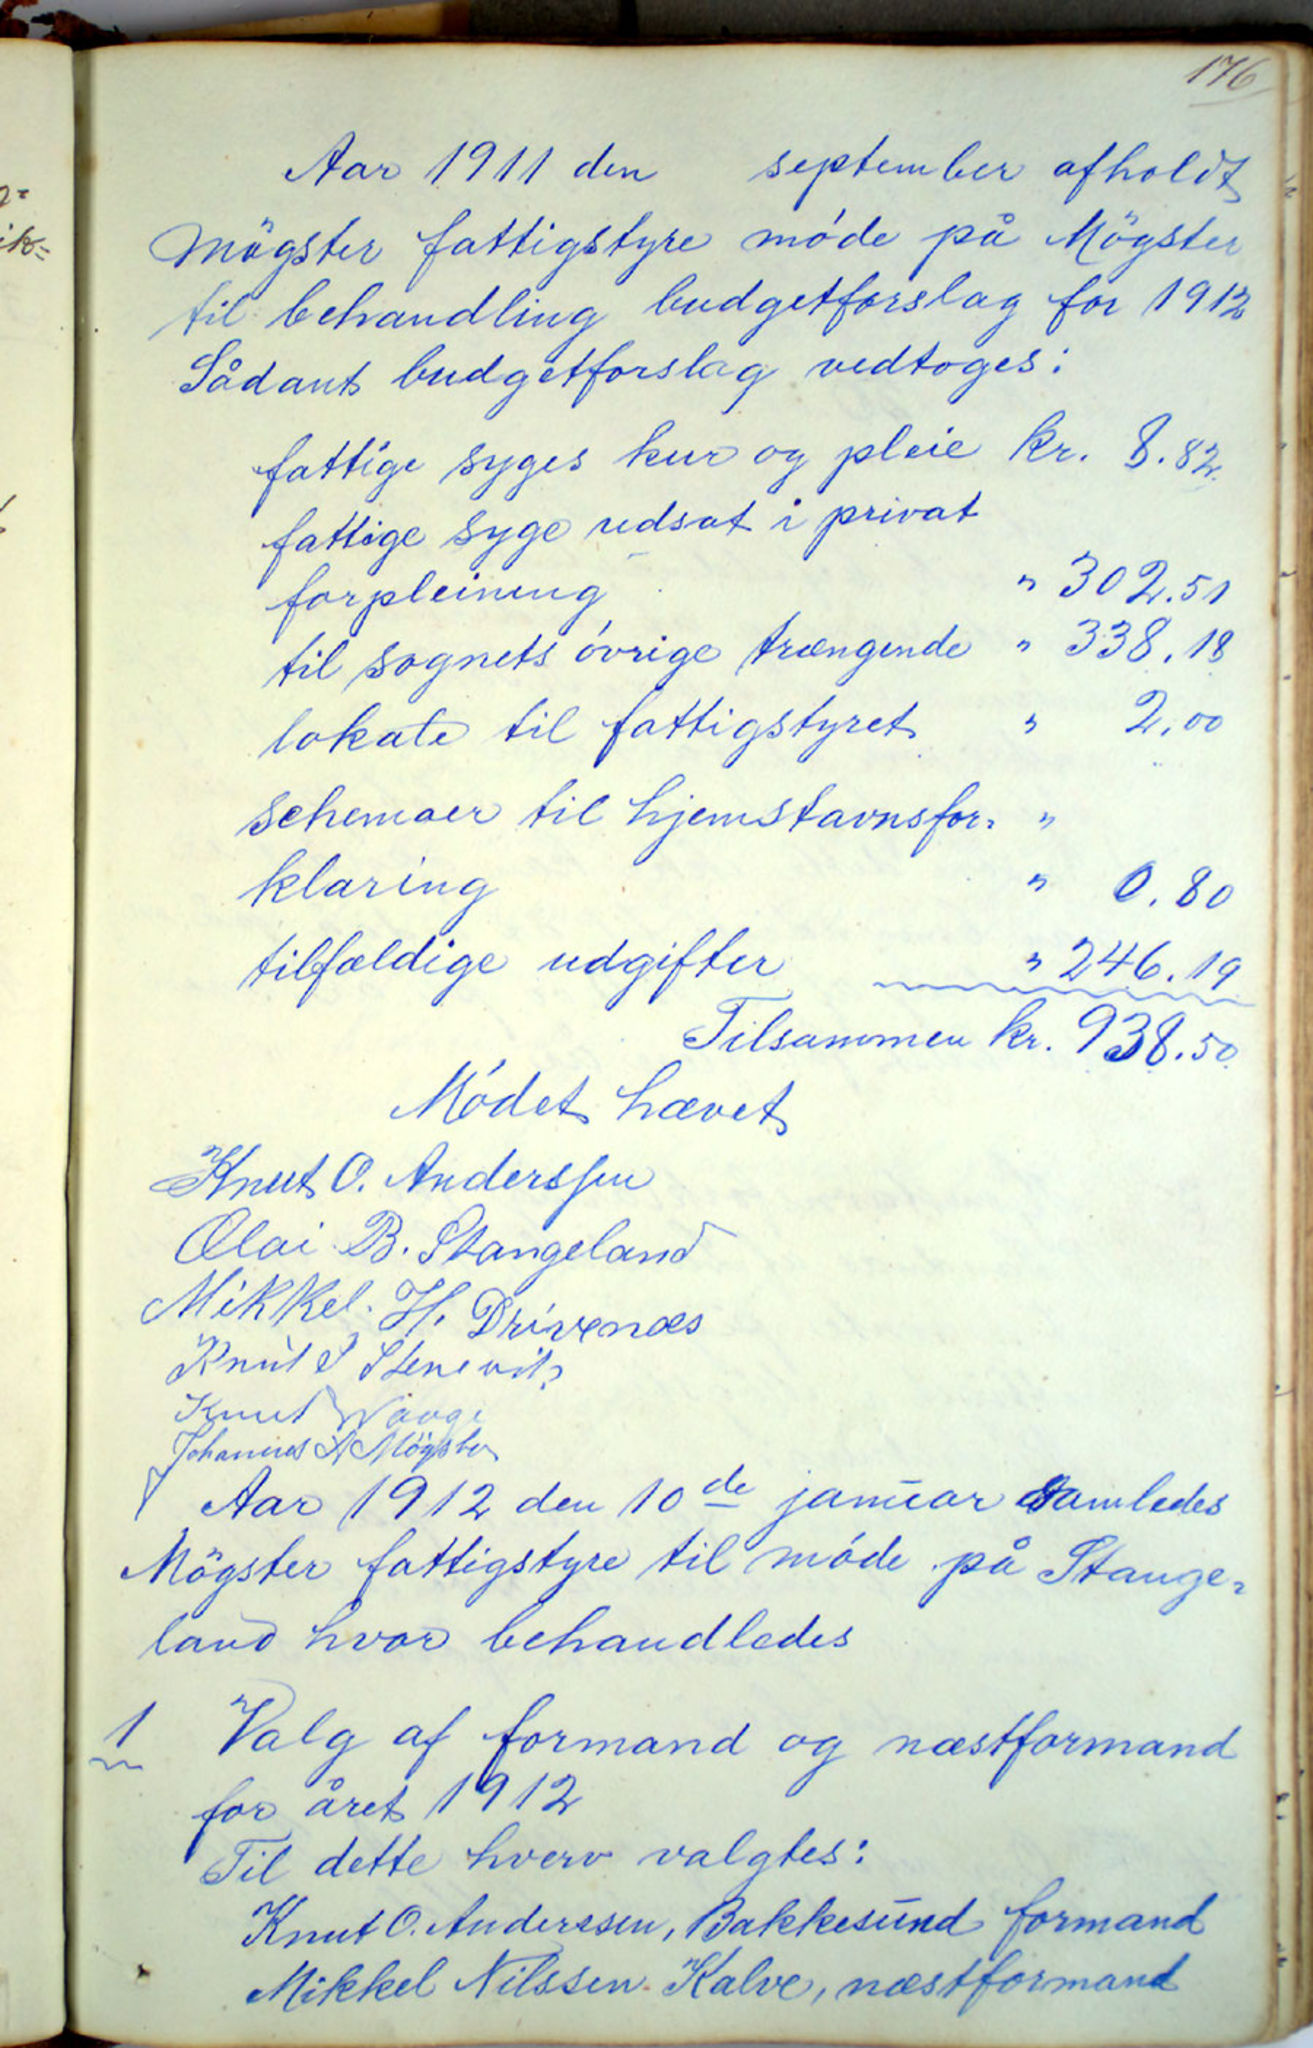 176
Aar 1911 den september afholdt
Mögster fattigstyre möde på Mögster
til behandling budgetforslag for 1912
Sådant budgetforslag vedtoges:
fattige syges kur og pleie kr. 8.82
fattige syge udsat i privat
forpleining " 302.51
til sognets óvrige trængende " 338.18
lokale til fattigstyret " 2.00
schemaer til hjemstavnsfor= "
klaring " 0.80
tilfældige udgifter " 246.19
Tilsammen kr. 938.50
Módet hævet
Knut O. Anderssen
Olai B. Stangeland
Mikkel. H. Drivenæs
Knut S Stenevik
Knut Waage
Johannes A Mögster
Aar 1912 den 10de januar samledes
Mögster fattigstyre til móde på Stange=
land hvor behandledes
1 Valg af formand og næstformand
for året 1912
Til dette hverv valgtes:
Knut O. Anderssen, Bakkesund formand
Mikkel Nilssen Kalve, næstformand